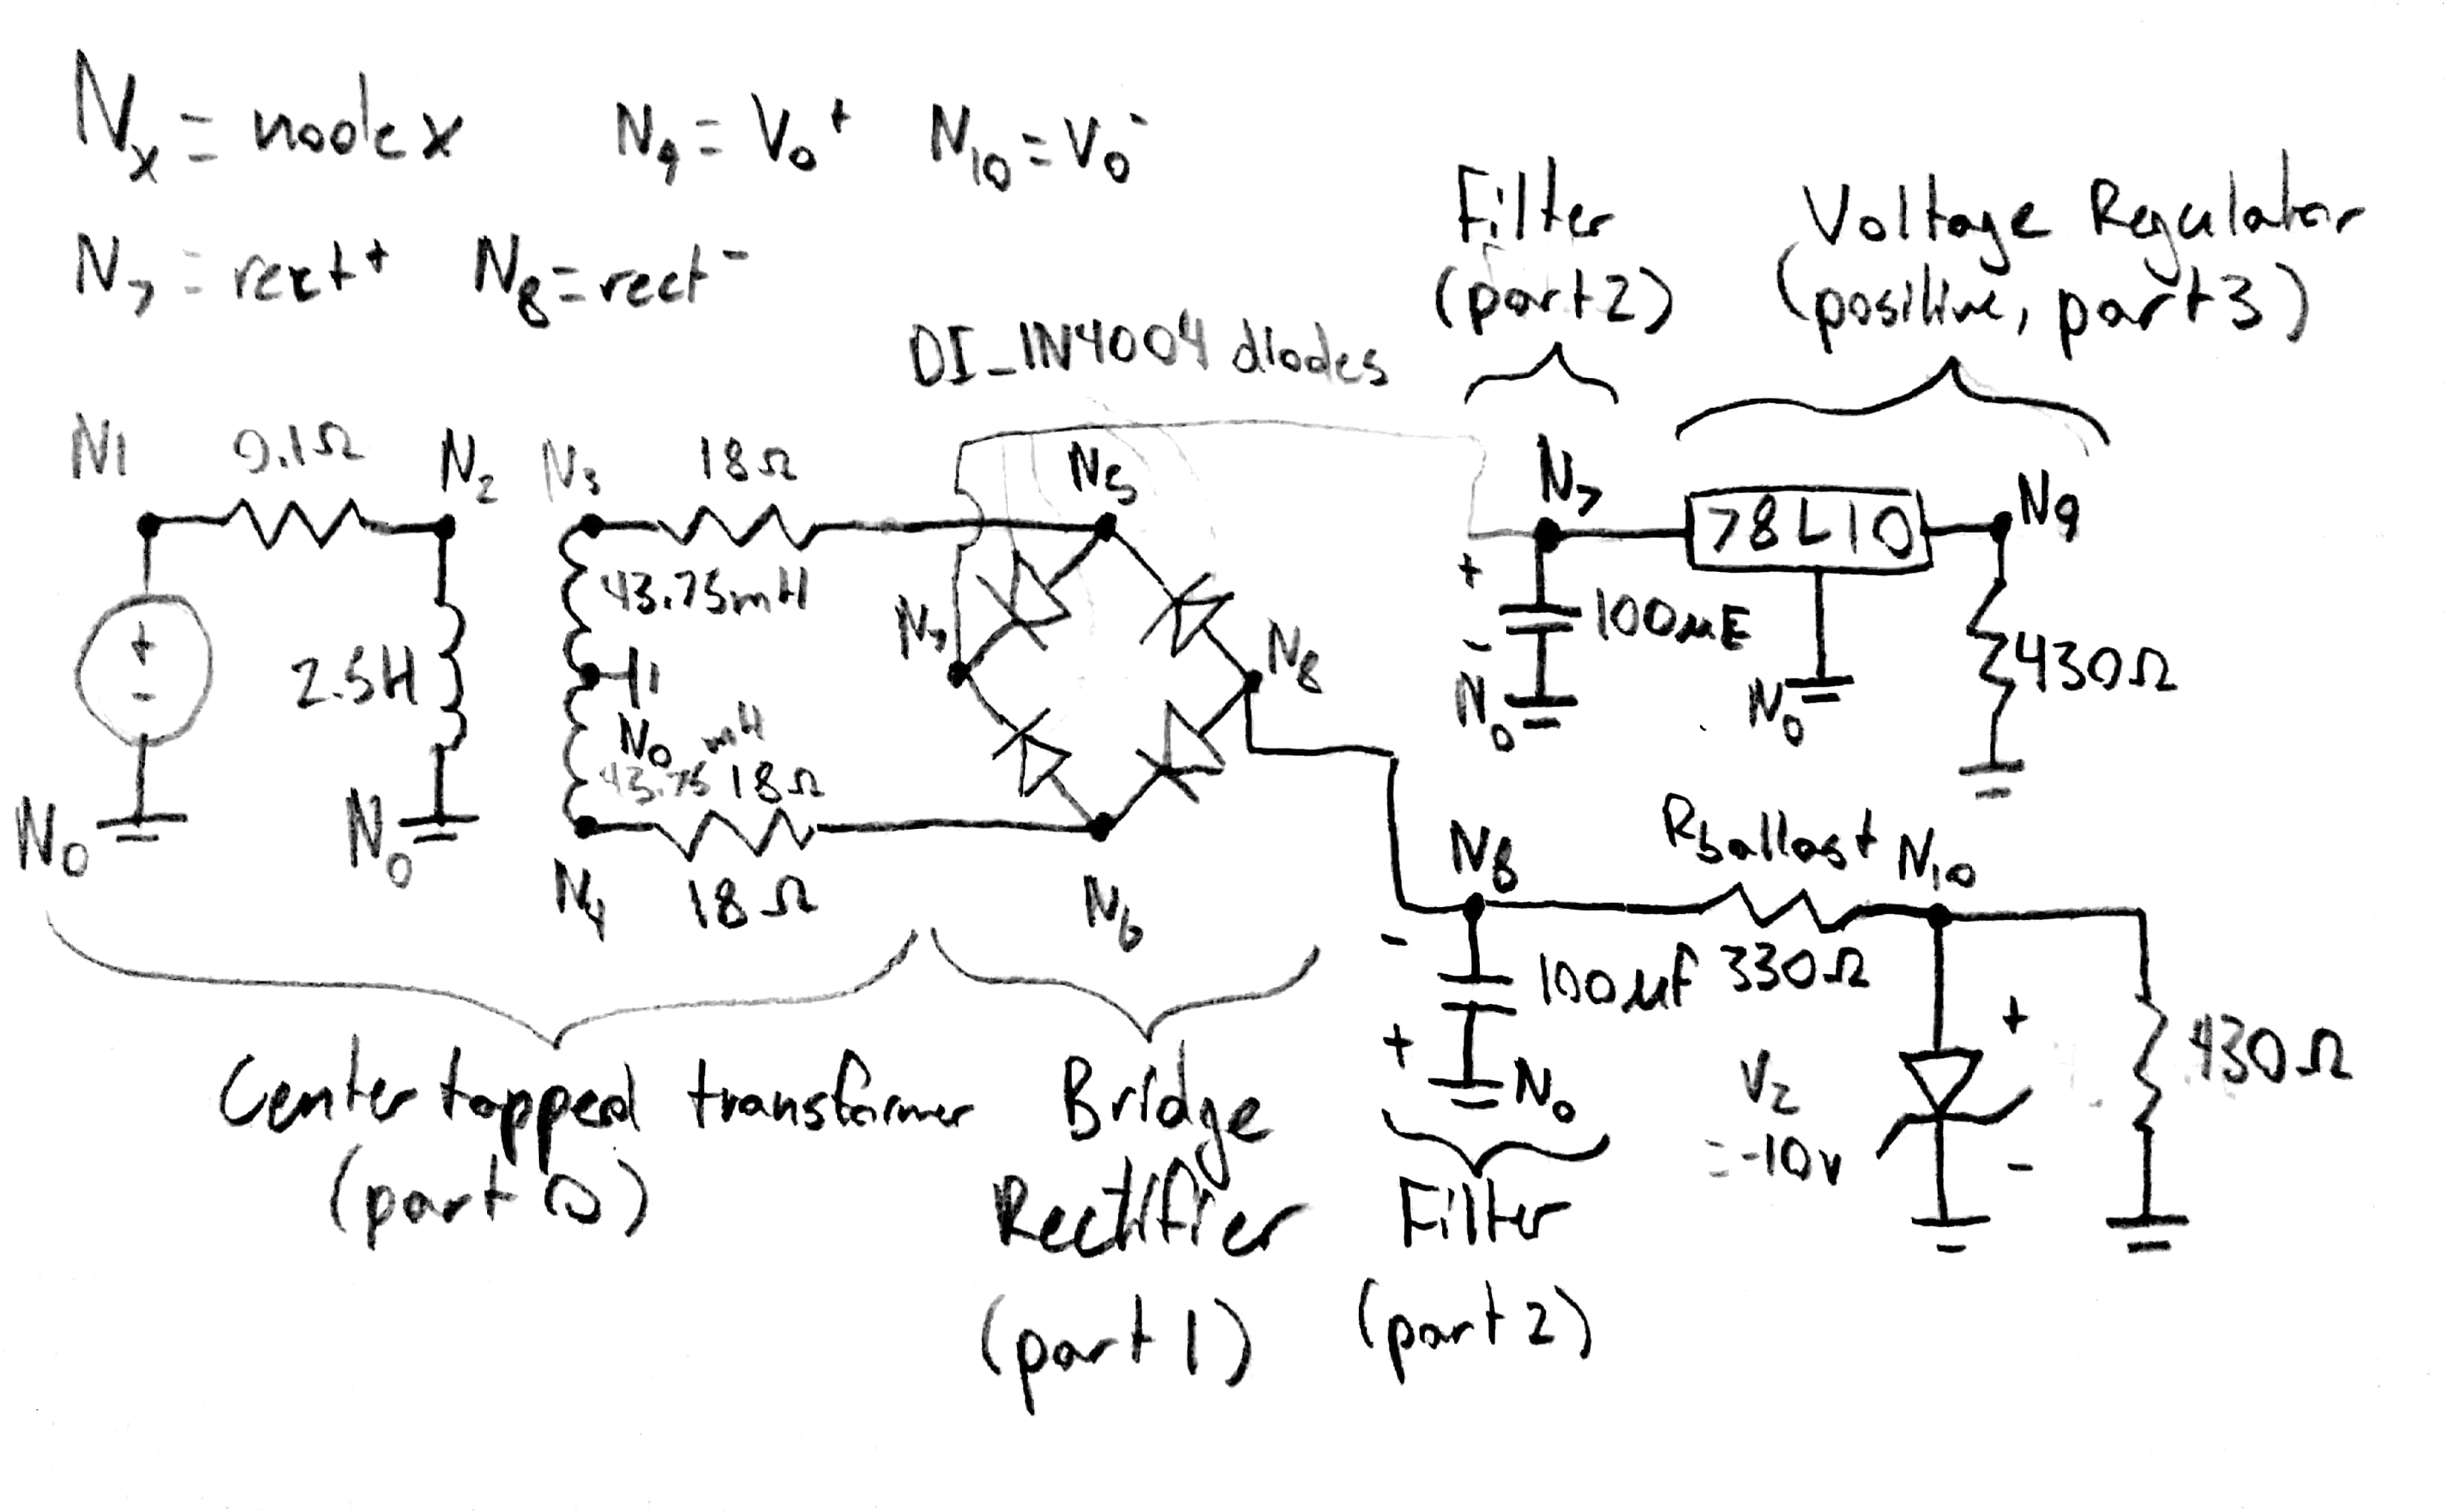 Nx = node x N9 = Vo+ N10 = Vo-
N7 = rect+ N8 = rect-
Filter
(part 2)
Voltage Regulator
(positive, part 3)
DI_1N4004 diodes
N1 0.1Ω N2 N3 18Ω N5
N7 78L10 N9
43.75mH
+ -
2.5H
N7 N8
+ - 100µF
N0 N0 430Ω
N0
mH
43.75 18Ω
N0 N0
N4 18Ω N6
N8 Rballast N10
- + 100µF 330Ω
N0
Vz
= -10v
+ -
430Ω
Center tapped transformer
(part 0)
Bridge
Rectifier
(part 1)
Filter
(part 2)